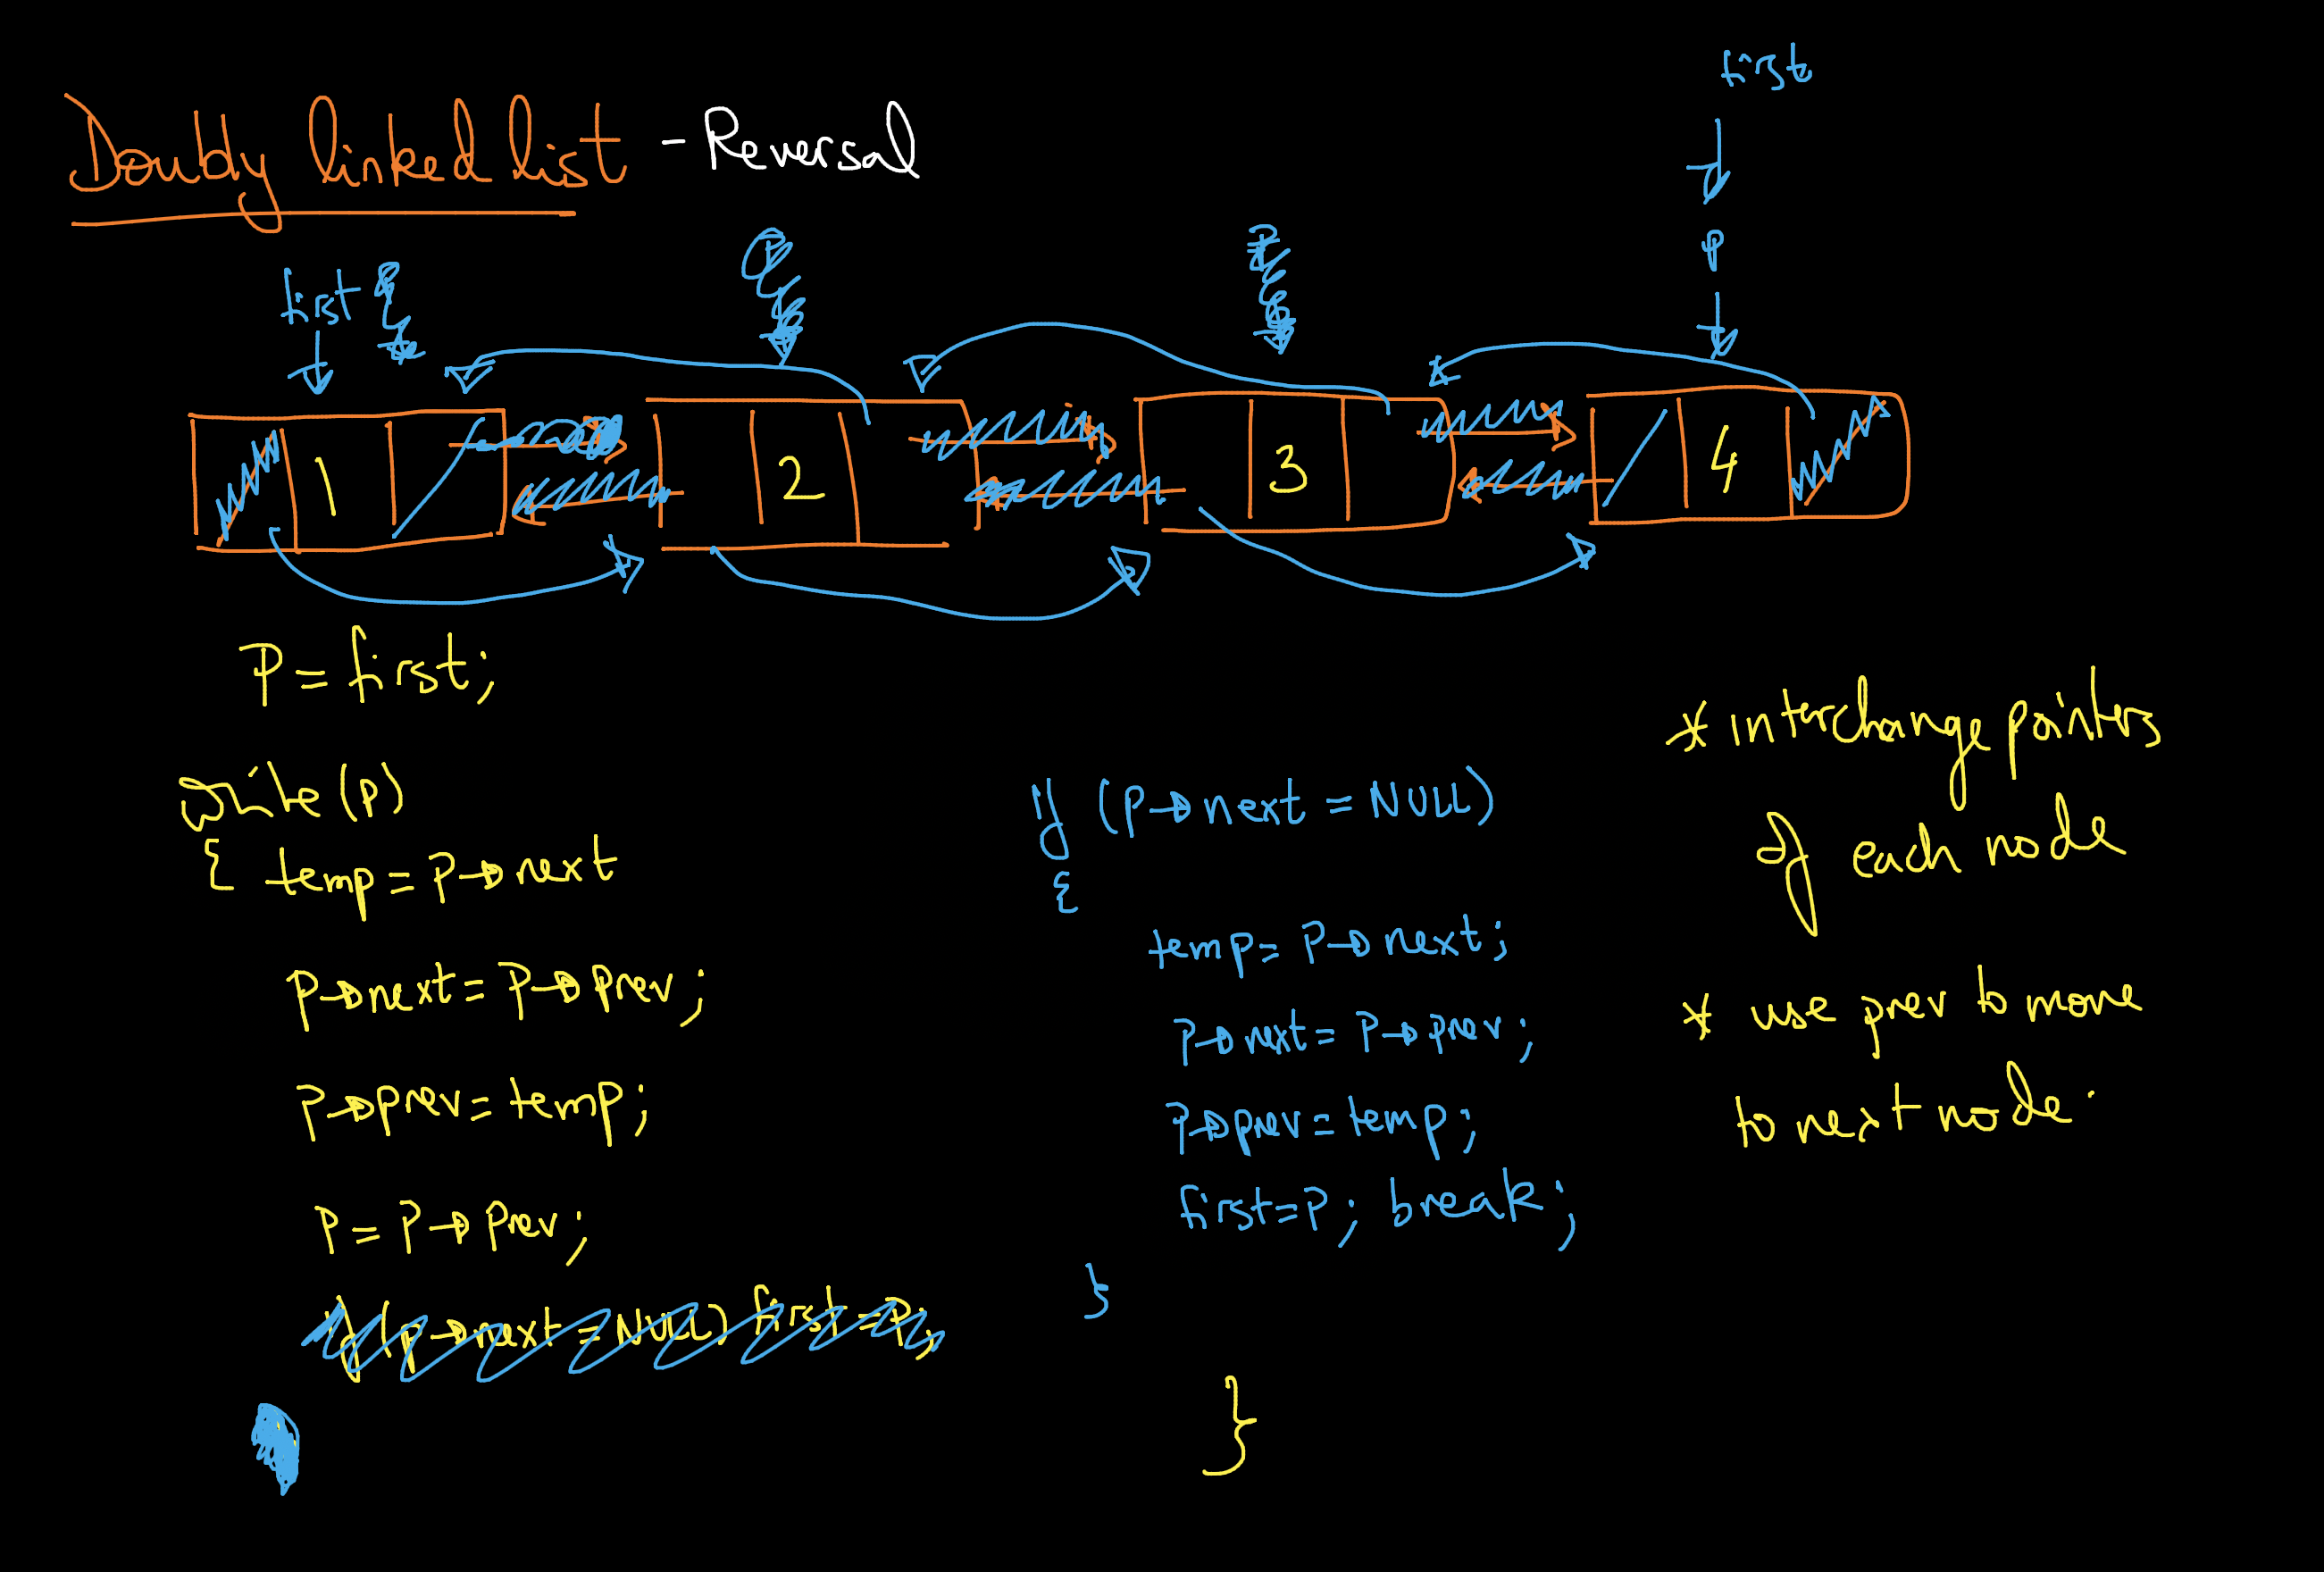 Doubly linked list - Reversal
first
P
first
1 2 3 4
P = first;
while (P)
{ temp = P→next
P→next = P→prev;
P→prev = temp;
P = P→prev;
if (P→next = NULL) first = P;
if (P→next = NULL)
{
temp = P→next;
P→next = P→prev;
P→prev = temp;
first = P; break;
}
}
* interchange pointers
of each node
* use prev to move
to next node.